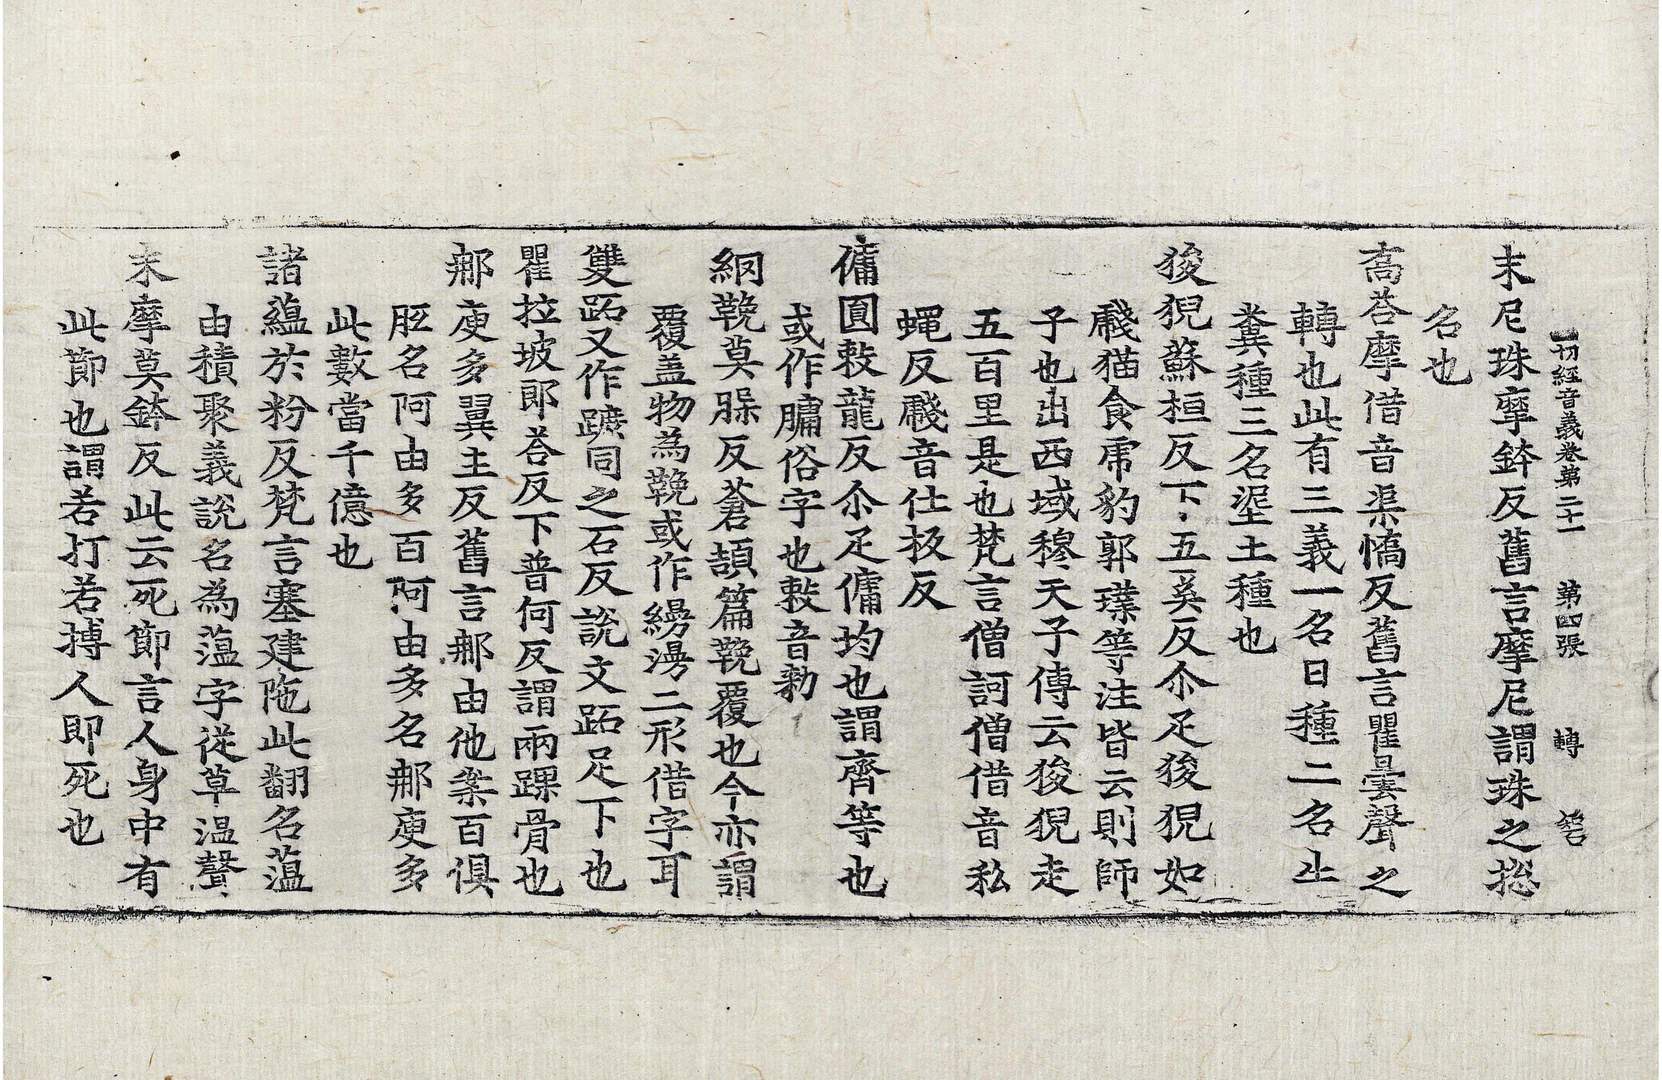 一切經音義卷第二十一 第四張 轉
末尼珠摩鉢反舊言摩尼謂珠之揔
名也
喬荅摩借音渠憍反舊言瞿曇聲之
轉也此有三義一名日種二名牛
糞種三名埿土種也
狻猊蘇桓反下五奚反尒疋狻猊如
虥猫食虎豹郭璞等注皆云則師
子也出西域穆天子傳云狻猊走
五百里是也梵言僧訶僧借音私
蠅反虥音仕板反
傭圓敕龍反尒疋傭均也謂齊等也
或作膅俗字也敕音勑
網鞔莫槃反蒼頡篇鞔覆也今亦謂
覆盖物為鞔或作縵漫二形借字耳
雙跖又作蹠同之石反說文跖足下也
瞿拉坡郎荅反下普何反謂兩踝骨也
郍庾多翼主反舊言郍由他案百俱
胝名阿由多百阿由多名郍庾多
此數當千億也
諸蘊於粉反梵言塞建陁此翻名薀
由積聚義說名為薀字從草温聲
末摩莫鉢反此云死節言人身中有
此節也謂若打若搏人即死也